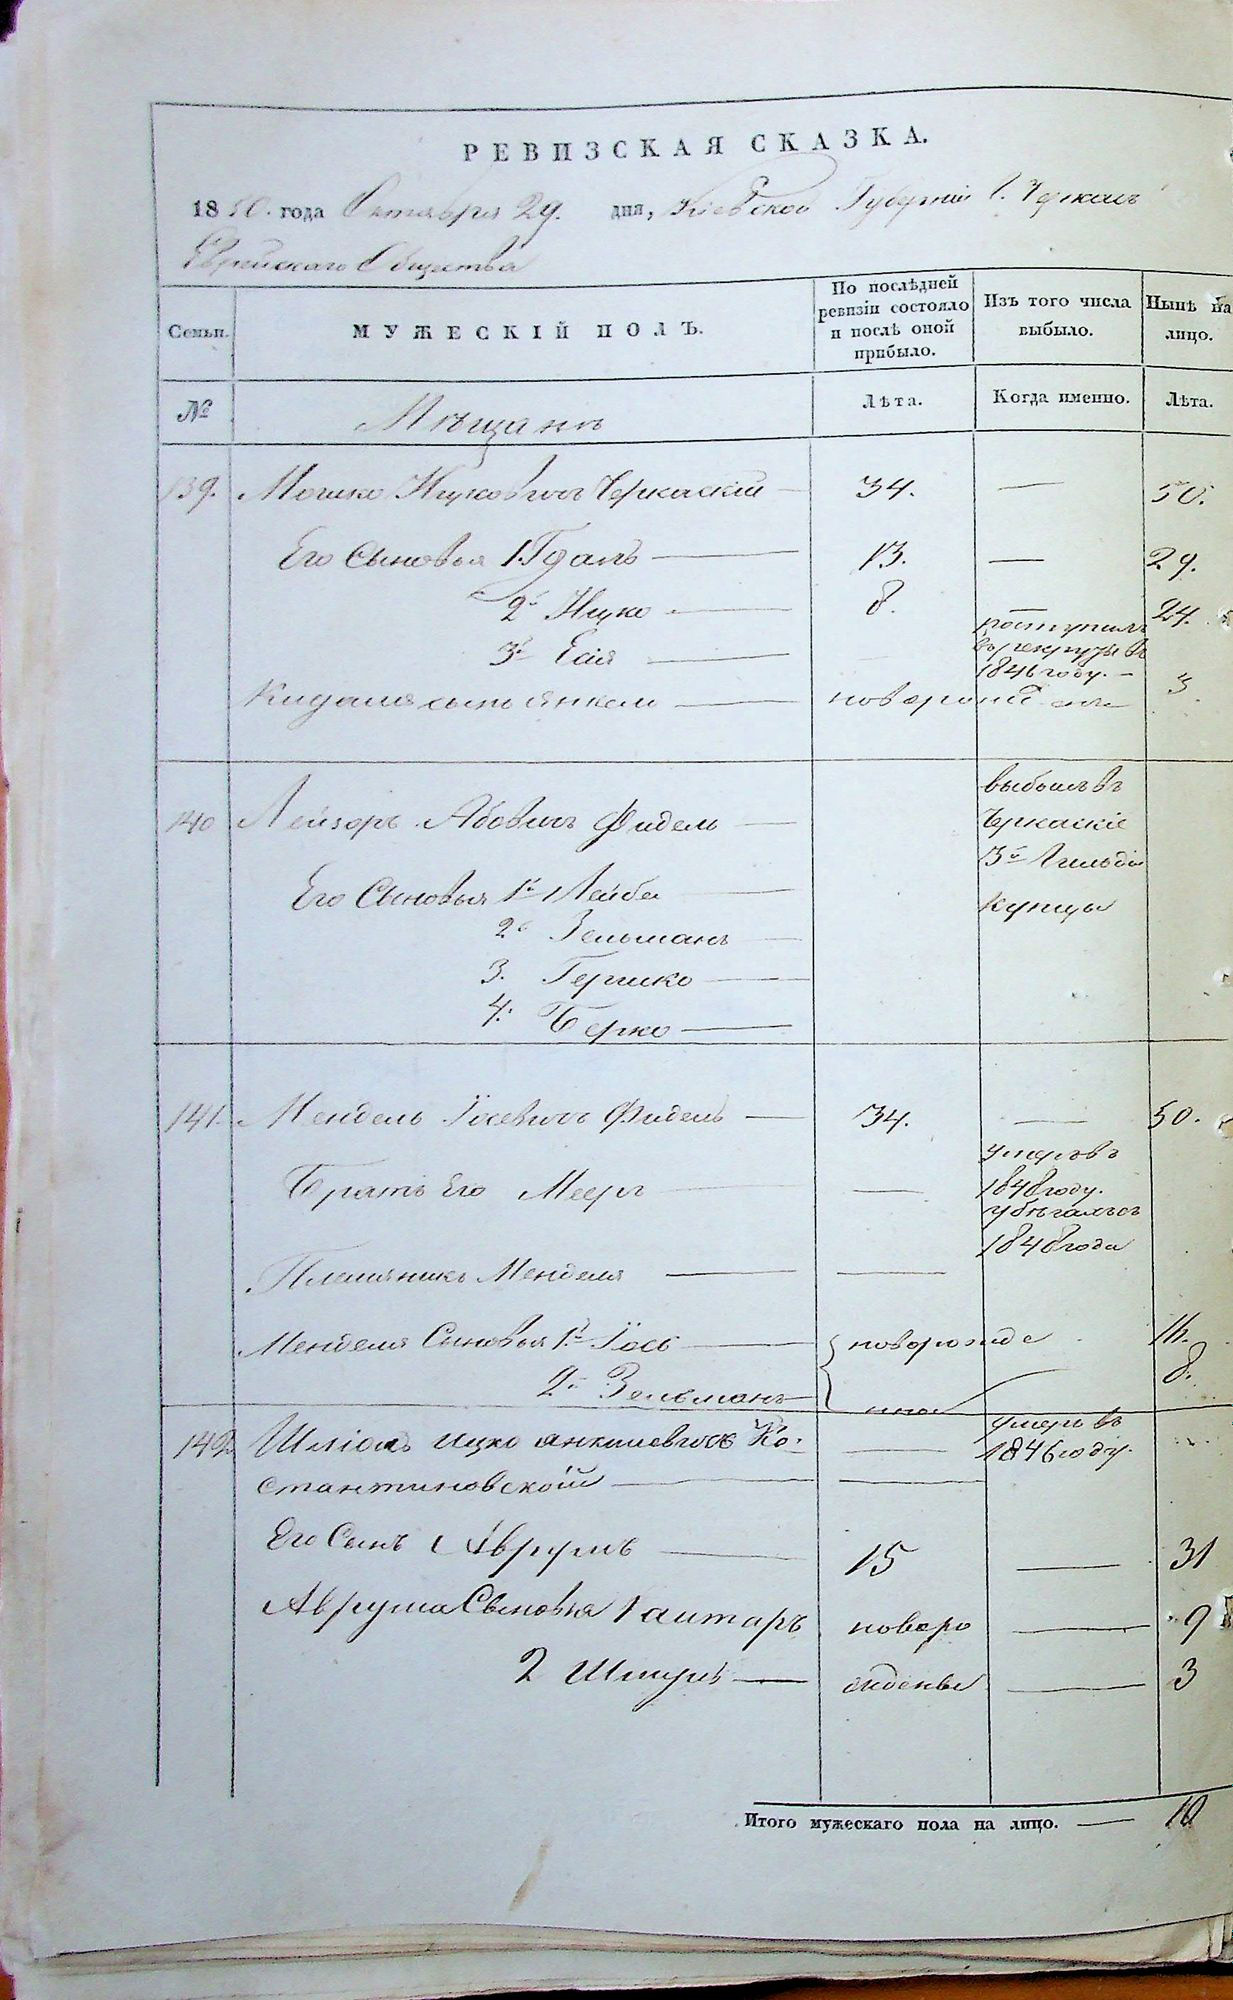 РЕВИЗСКАЯ СКАЗКА.
1850. года Октября 29. дня, Кіевской Губерніи Г. Черкасъ
Еврейскаго Общества
Семьи. МУЖЕСКІЙ ПОЛЪ. По послѣдней ревизіи состояло и послѣ оной прибыло. Изъ того числа выбыло. Нынѣ на лицо.
№ Мѣщанъ Лѣта. Когда именно. Лѣта.
139. Мошко Ицковичъ Черкаскій 34. — 50.
Его Сыновья 1. 13. — 29.
2й Ицко 8. — 24.
3й Есія поступилъ въ рекруты въ 1846 году. —
сынъ Янкель новорожденъ 3
140 Лейзоръ Абовичъ Фидель выбылъ въ Черкаскіе 3й Гильдіи купцы
Его Сыновья 1й Лейба
2й Зельманъ
3. Гершко
4. Берко
141. Мендель Іосевичъ Фидель 34. — 50.
Братъ Его Мееръ — умеръ въ 1848 году.
Племяникъ Менделя — 1848 года
Менделя Сыновья 1й Іось новорожде 16.
2й Зельманъ нны 8.
142. Ицко Ко. — умеръ въ 1846 году.
стантиновскій —
Его Сынъ Аврумъ 15 — 31
Аврума Сыновья 1 новоро — 9
2 Шмуль жденые — 3
Итого мужескаго пола на лицо. — 10